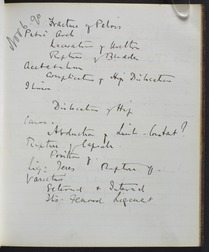 Nov 6. 90
Fracture of Pelvis
Pubic Arch
Laceration of Urethra
Rupture of Bladder
Acetabulum
Complication of Hip Dislocation
Ilium
Dislocation of Hip
Cause
Abduction of Limb - constant?
Rupture of Capsule
Position of
Lig: Teres Rupture of
Varieties
External & Internal
Ilio-Femoral Ligament